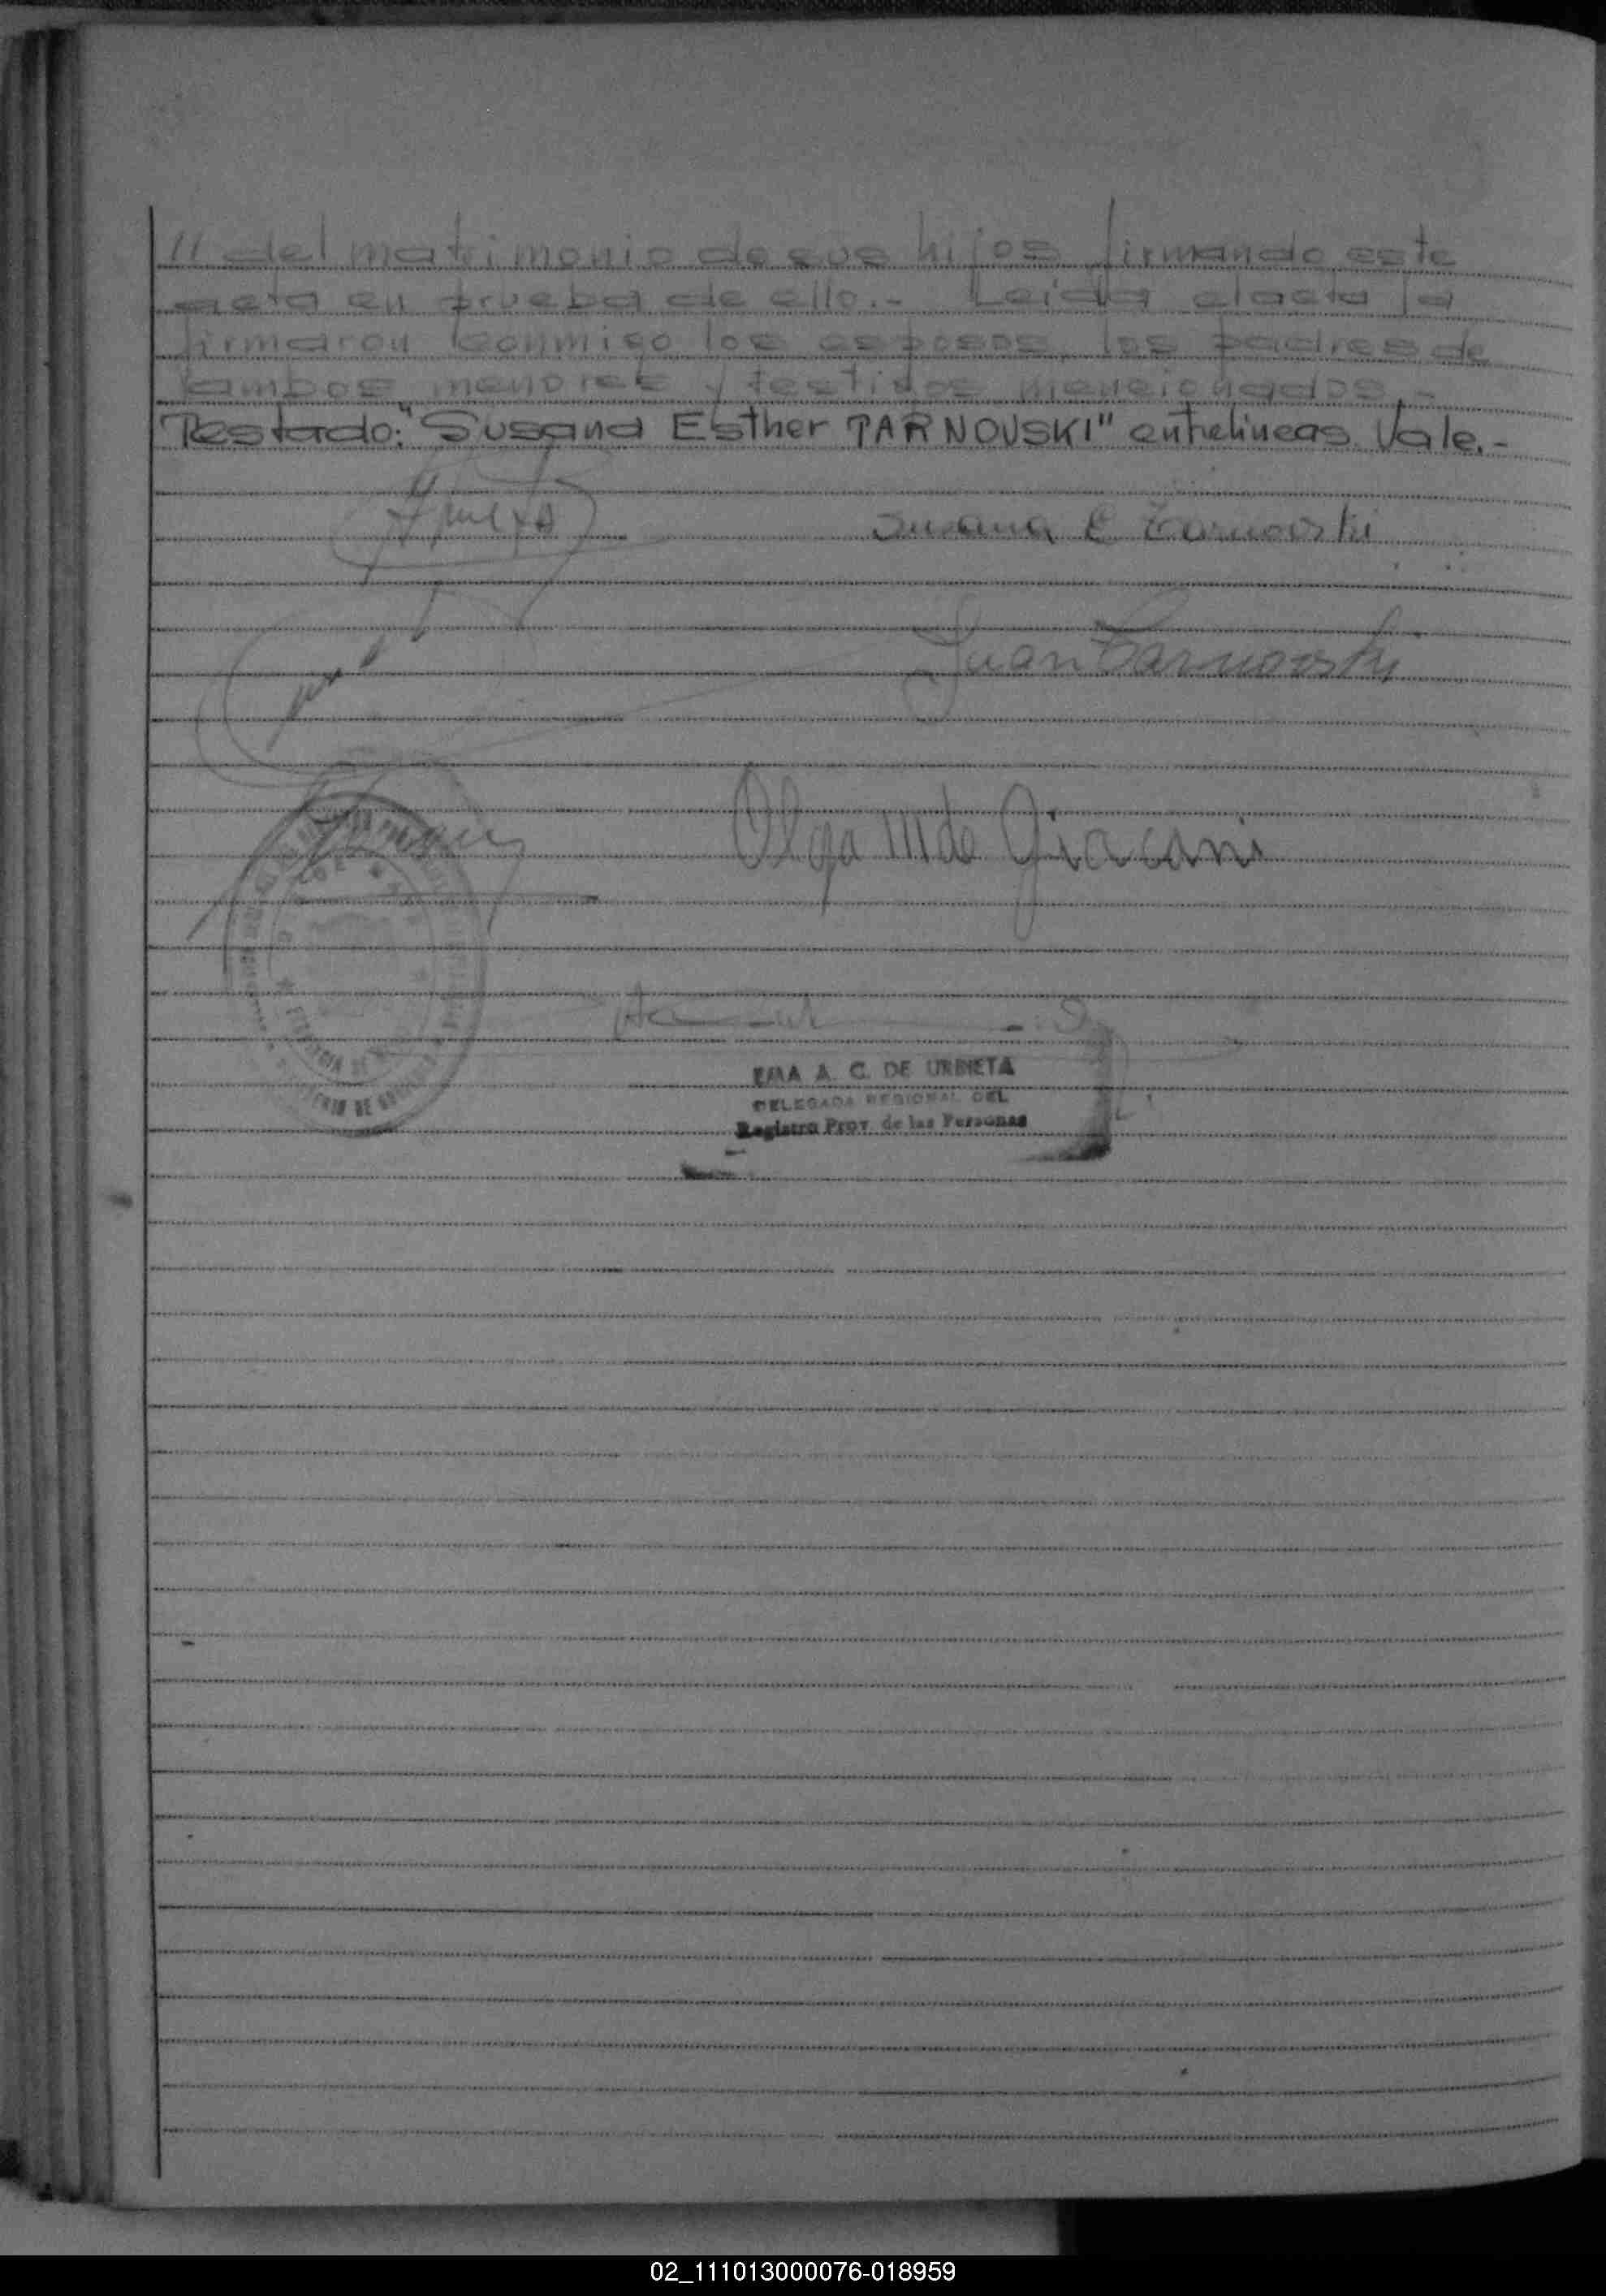 // del matrimonio de sus hijos firmando este
acta en prueba de ello.- Leida el acta la
firmaron conmigo los esposos, los padres de
ambos menores y testigos mencionados.-
Testado: "Susana Esther TARNOVSKI" entrelineas. Vale.-
Susana E Tarnovski
Juan Tarnovski
Olga M de Giacani
EMA A. C. DE URBIETA
DELEGADA REGIONAL DEL
Registro Prov. de las Personas
02_111013000076-018959